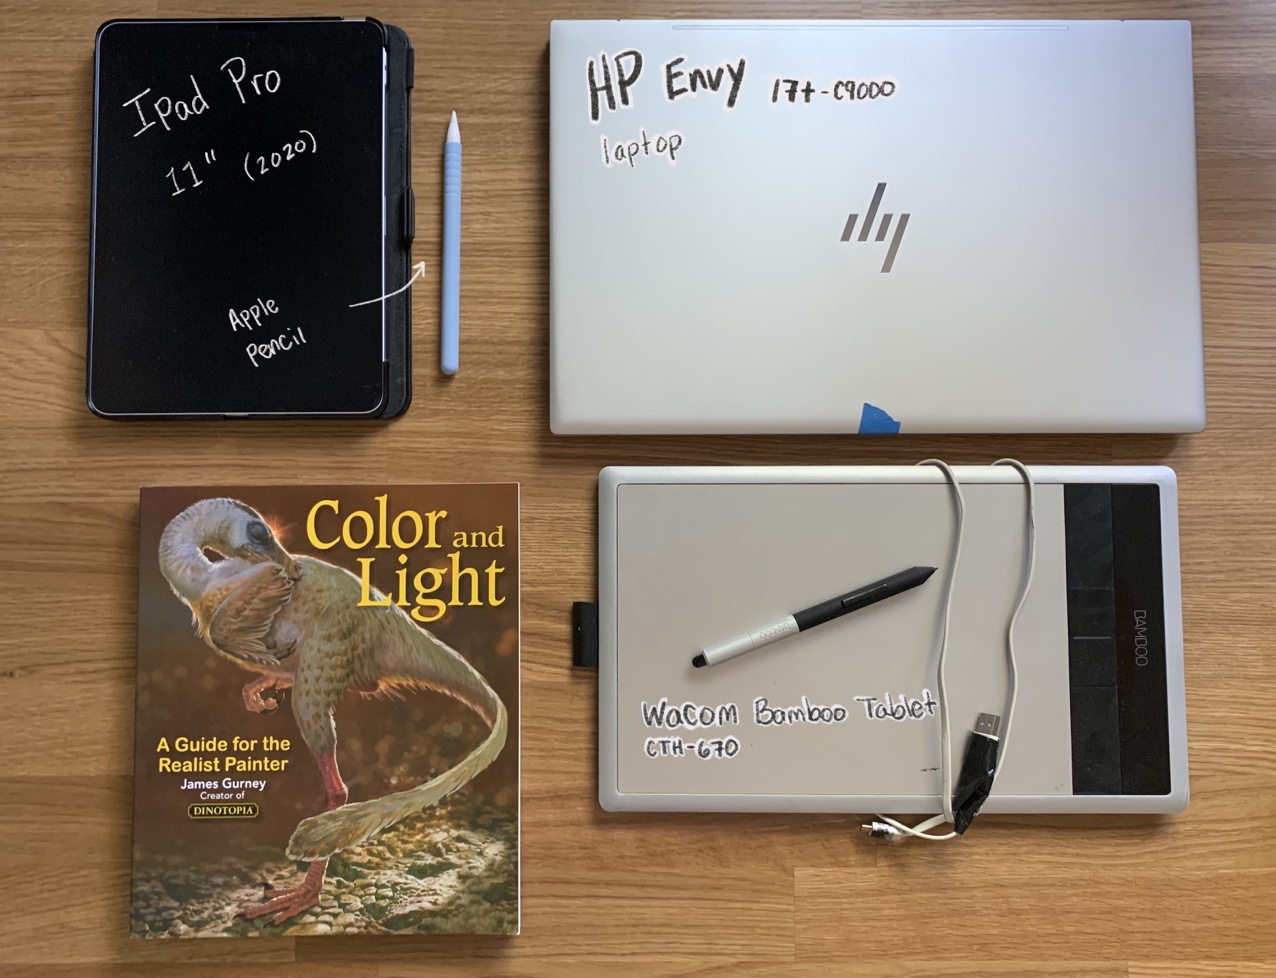 Ipad Pro
11" (2020)
Apple
pencil
HP Envy 17t-C9000
laptop
hp
Color and
Light
A Guide for the
Realist Painter
James Gurney
Creator of
DINOTOPIA
BAMBOO
Wacom Bamboo Tablet
CTH-670